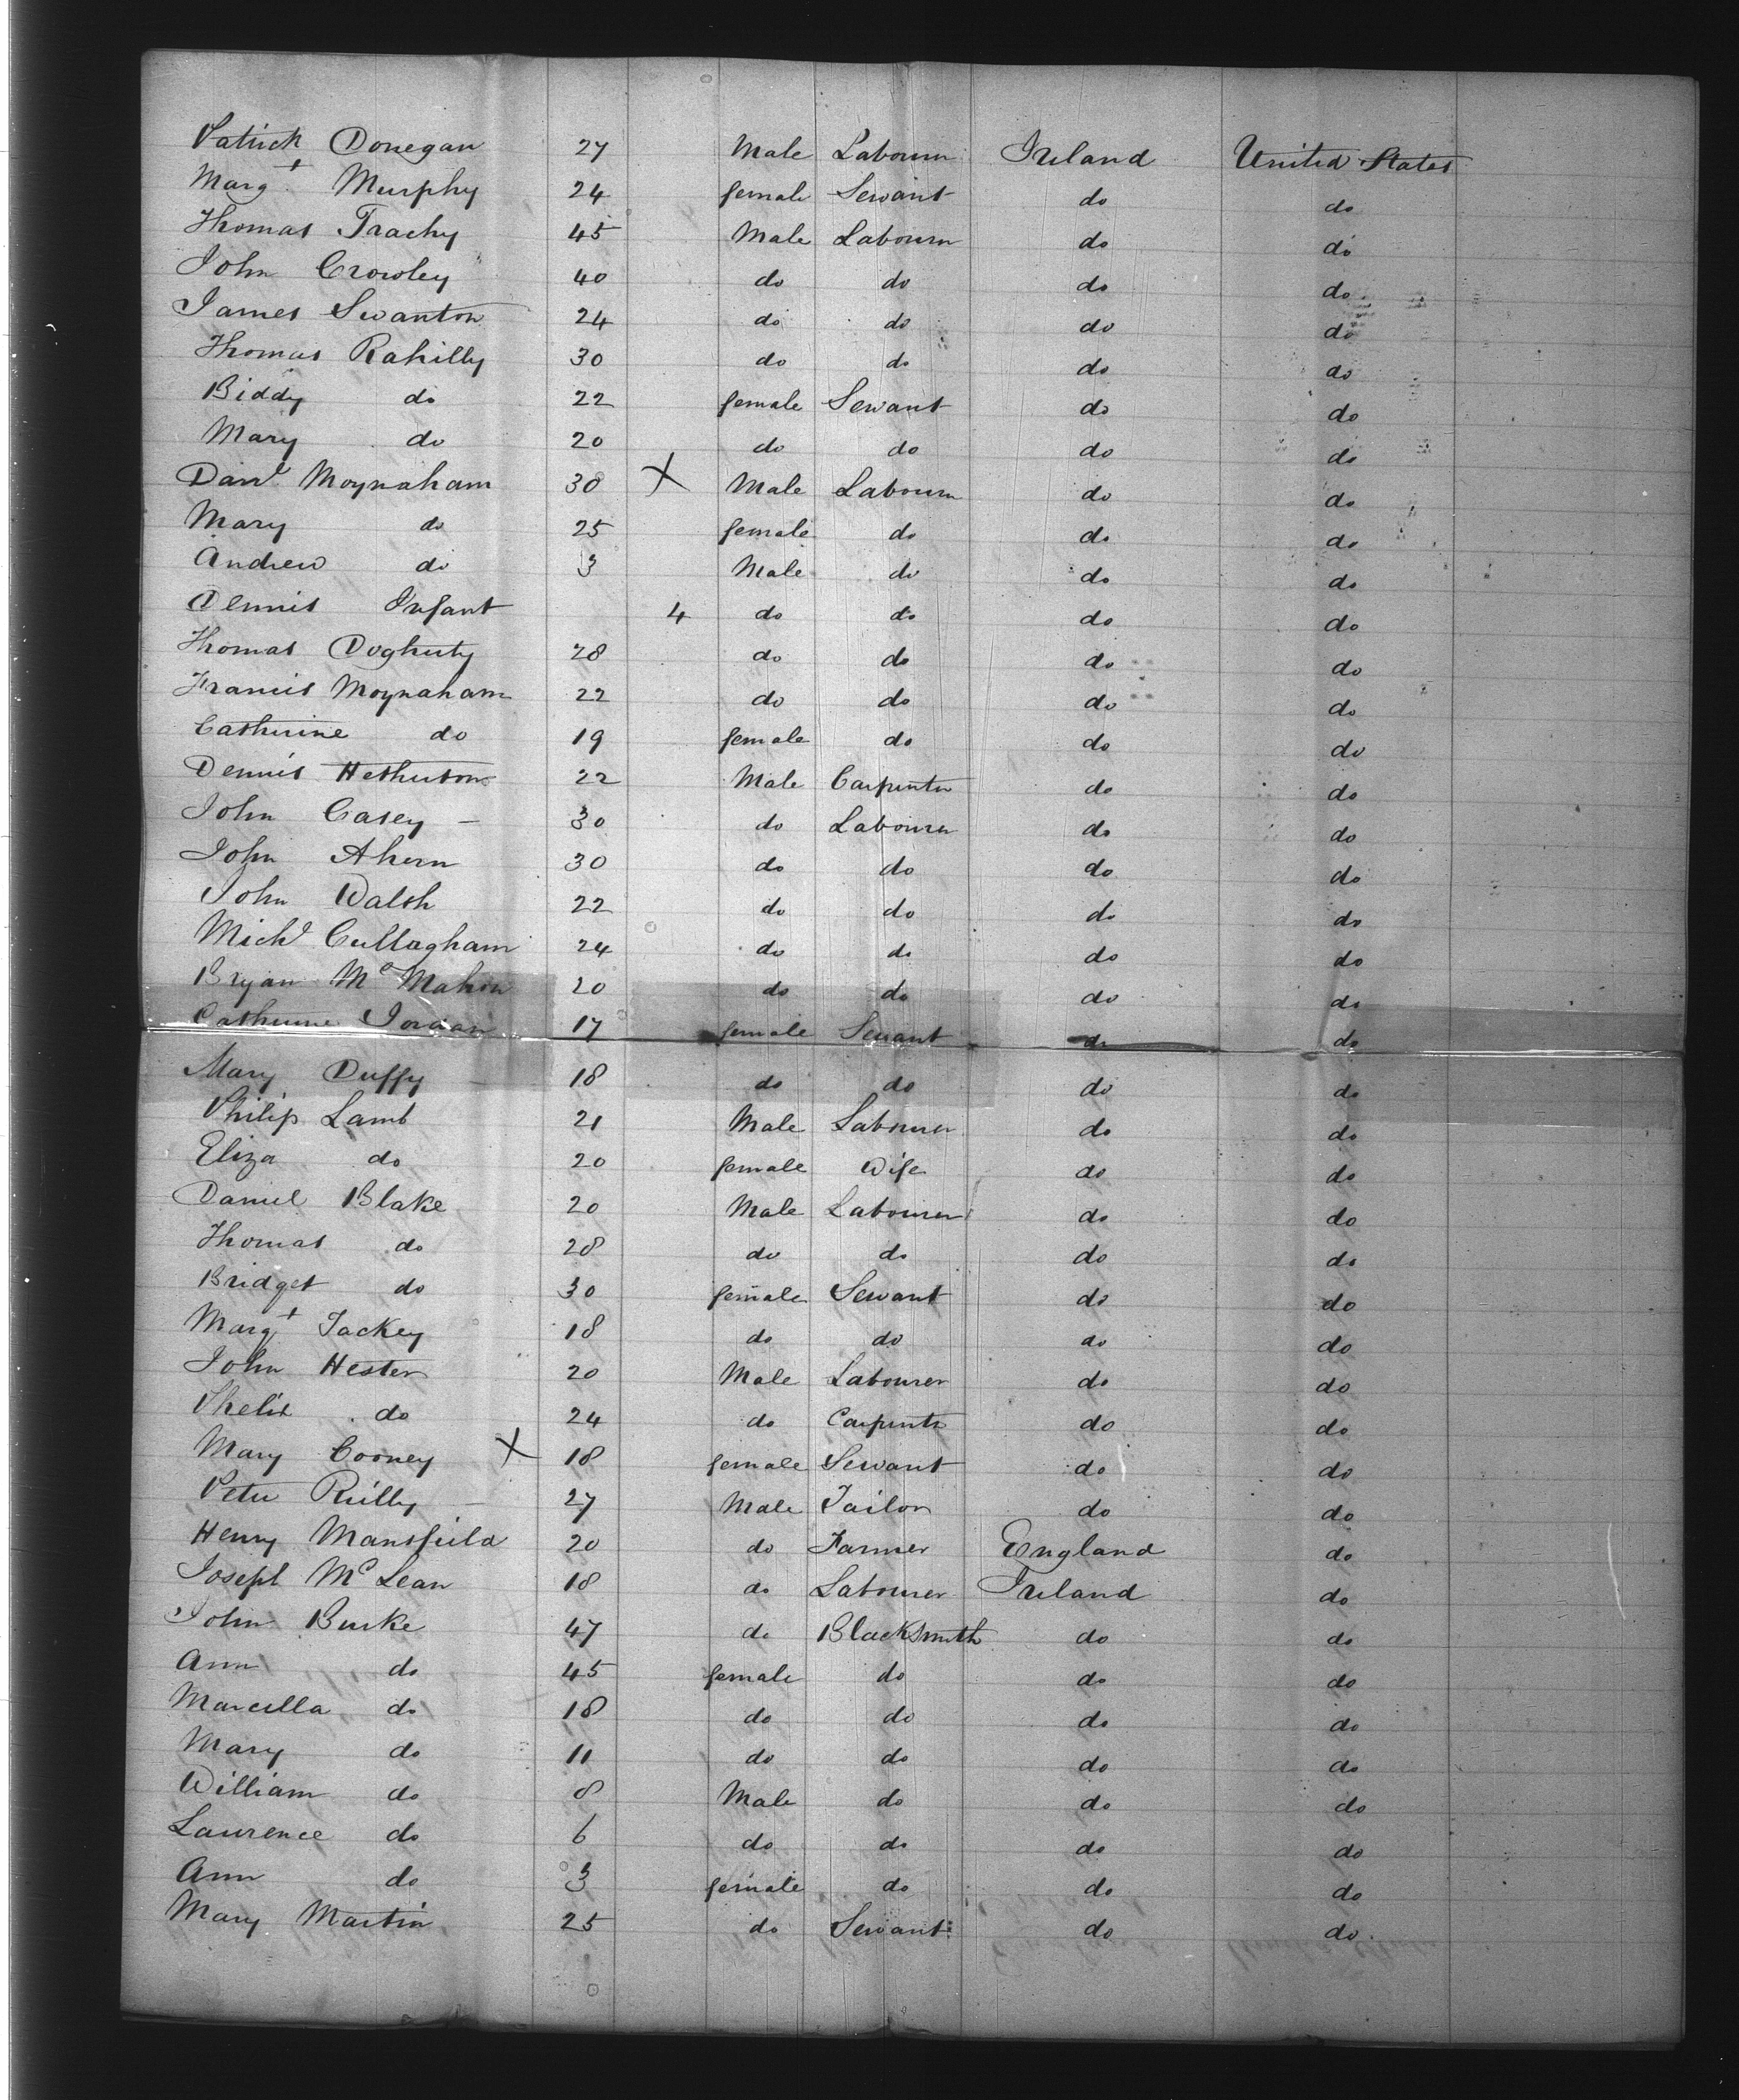 Patrick Donegan 27 Male Labourer Ireland United States
Margt Murphy 24 female Servant do do
Thomas Trachy 45 Male Labourer do do
John Crowley 40 do do do do
James Swanton 24 do do do do
Thomas Rahilly 30 do do do do
Biddy do 22 female Servant do do
Mary do 20 do do do do
Danl Moynaham 30 X Male Labourer do do
Mary do 25 female do do do
Andrew do 3 Male do do do
Dennis Infant 4 do do do do
Thomas Dogherty 28 do do do do
Francis Moynaham 22 do do do do
Catherine do 19 female do do do
Dennis Hetherton 22 Male Carpenter do do
John Casey - 30 do Labourer do do
John Ahern 30 do do do do
John Walsh 22 do do do do
Michl Cullagham 24 do do do do
Bryan Mc Mahon 20 do do do do
Catherine Jordan 17 female Servant do do
Mary Duffy 18 do do do do
Philip Lamb 21 Male Labourer do do
Eliza do 20 female Wife do do
Daniel Blake 20 Male Labourer do do
Thomas do 28 do do do do
Bridget do 30 female Servant do do
Margt Jackey 18 do do do do
John Hester 20 Male Labourer do do
Phelix do 24 do Carpenter do do
Mary Cooney X 18 female Servant do do
Peter Reilly - 27 Male Tailor do do
Henry Mansfield 20 do Farmer England do
Joseph Mc Lean 18 do Labourer Ireland do
John Burke 47 do Blacksmith do do
Ann do 45 female do do do
Marcella do 18 do do do do
Mary do 11 do do do do
William do 8 Male do do do
Laurence do 6 do do do do
Ann do 3 female do do do
Mary Martin 25 do Servant do do